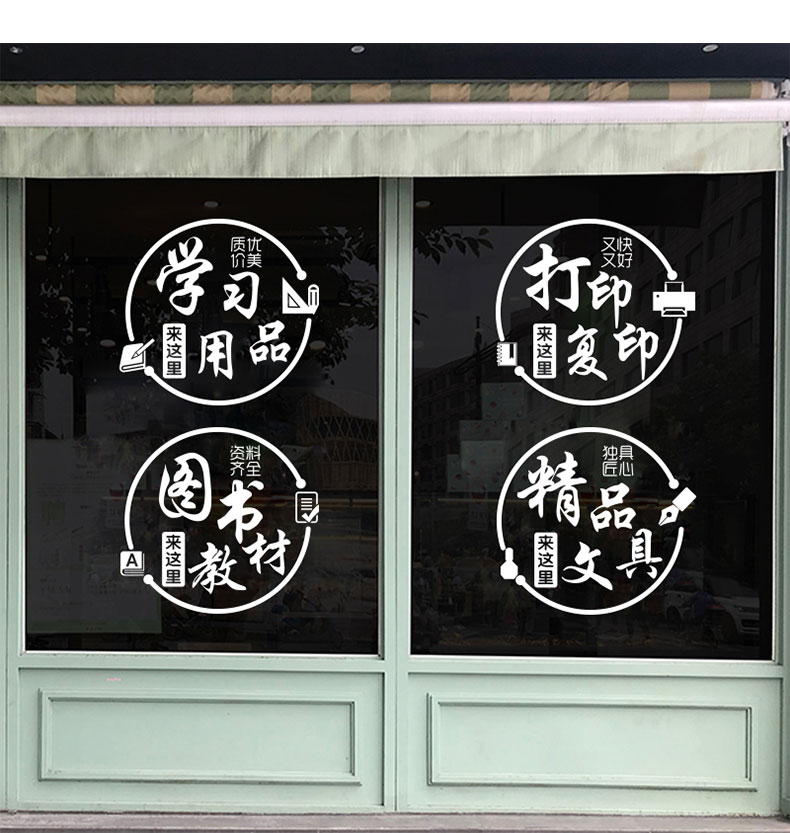 质优
价美
学习
来这里
用品
又快
又好
打印
来这里
复印
资料
齐全
图书
来这里
教材
A
独具
匠心
精品
来这里
文具